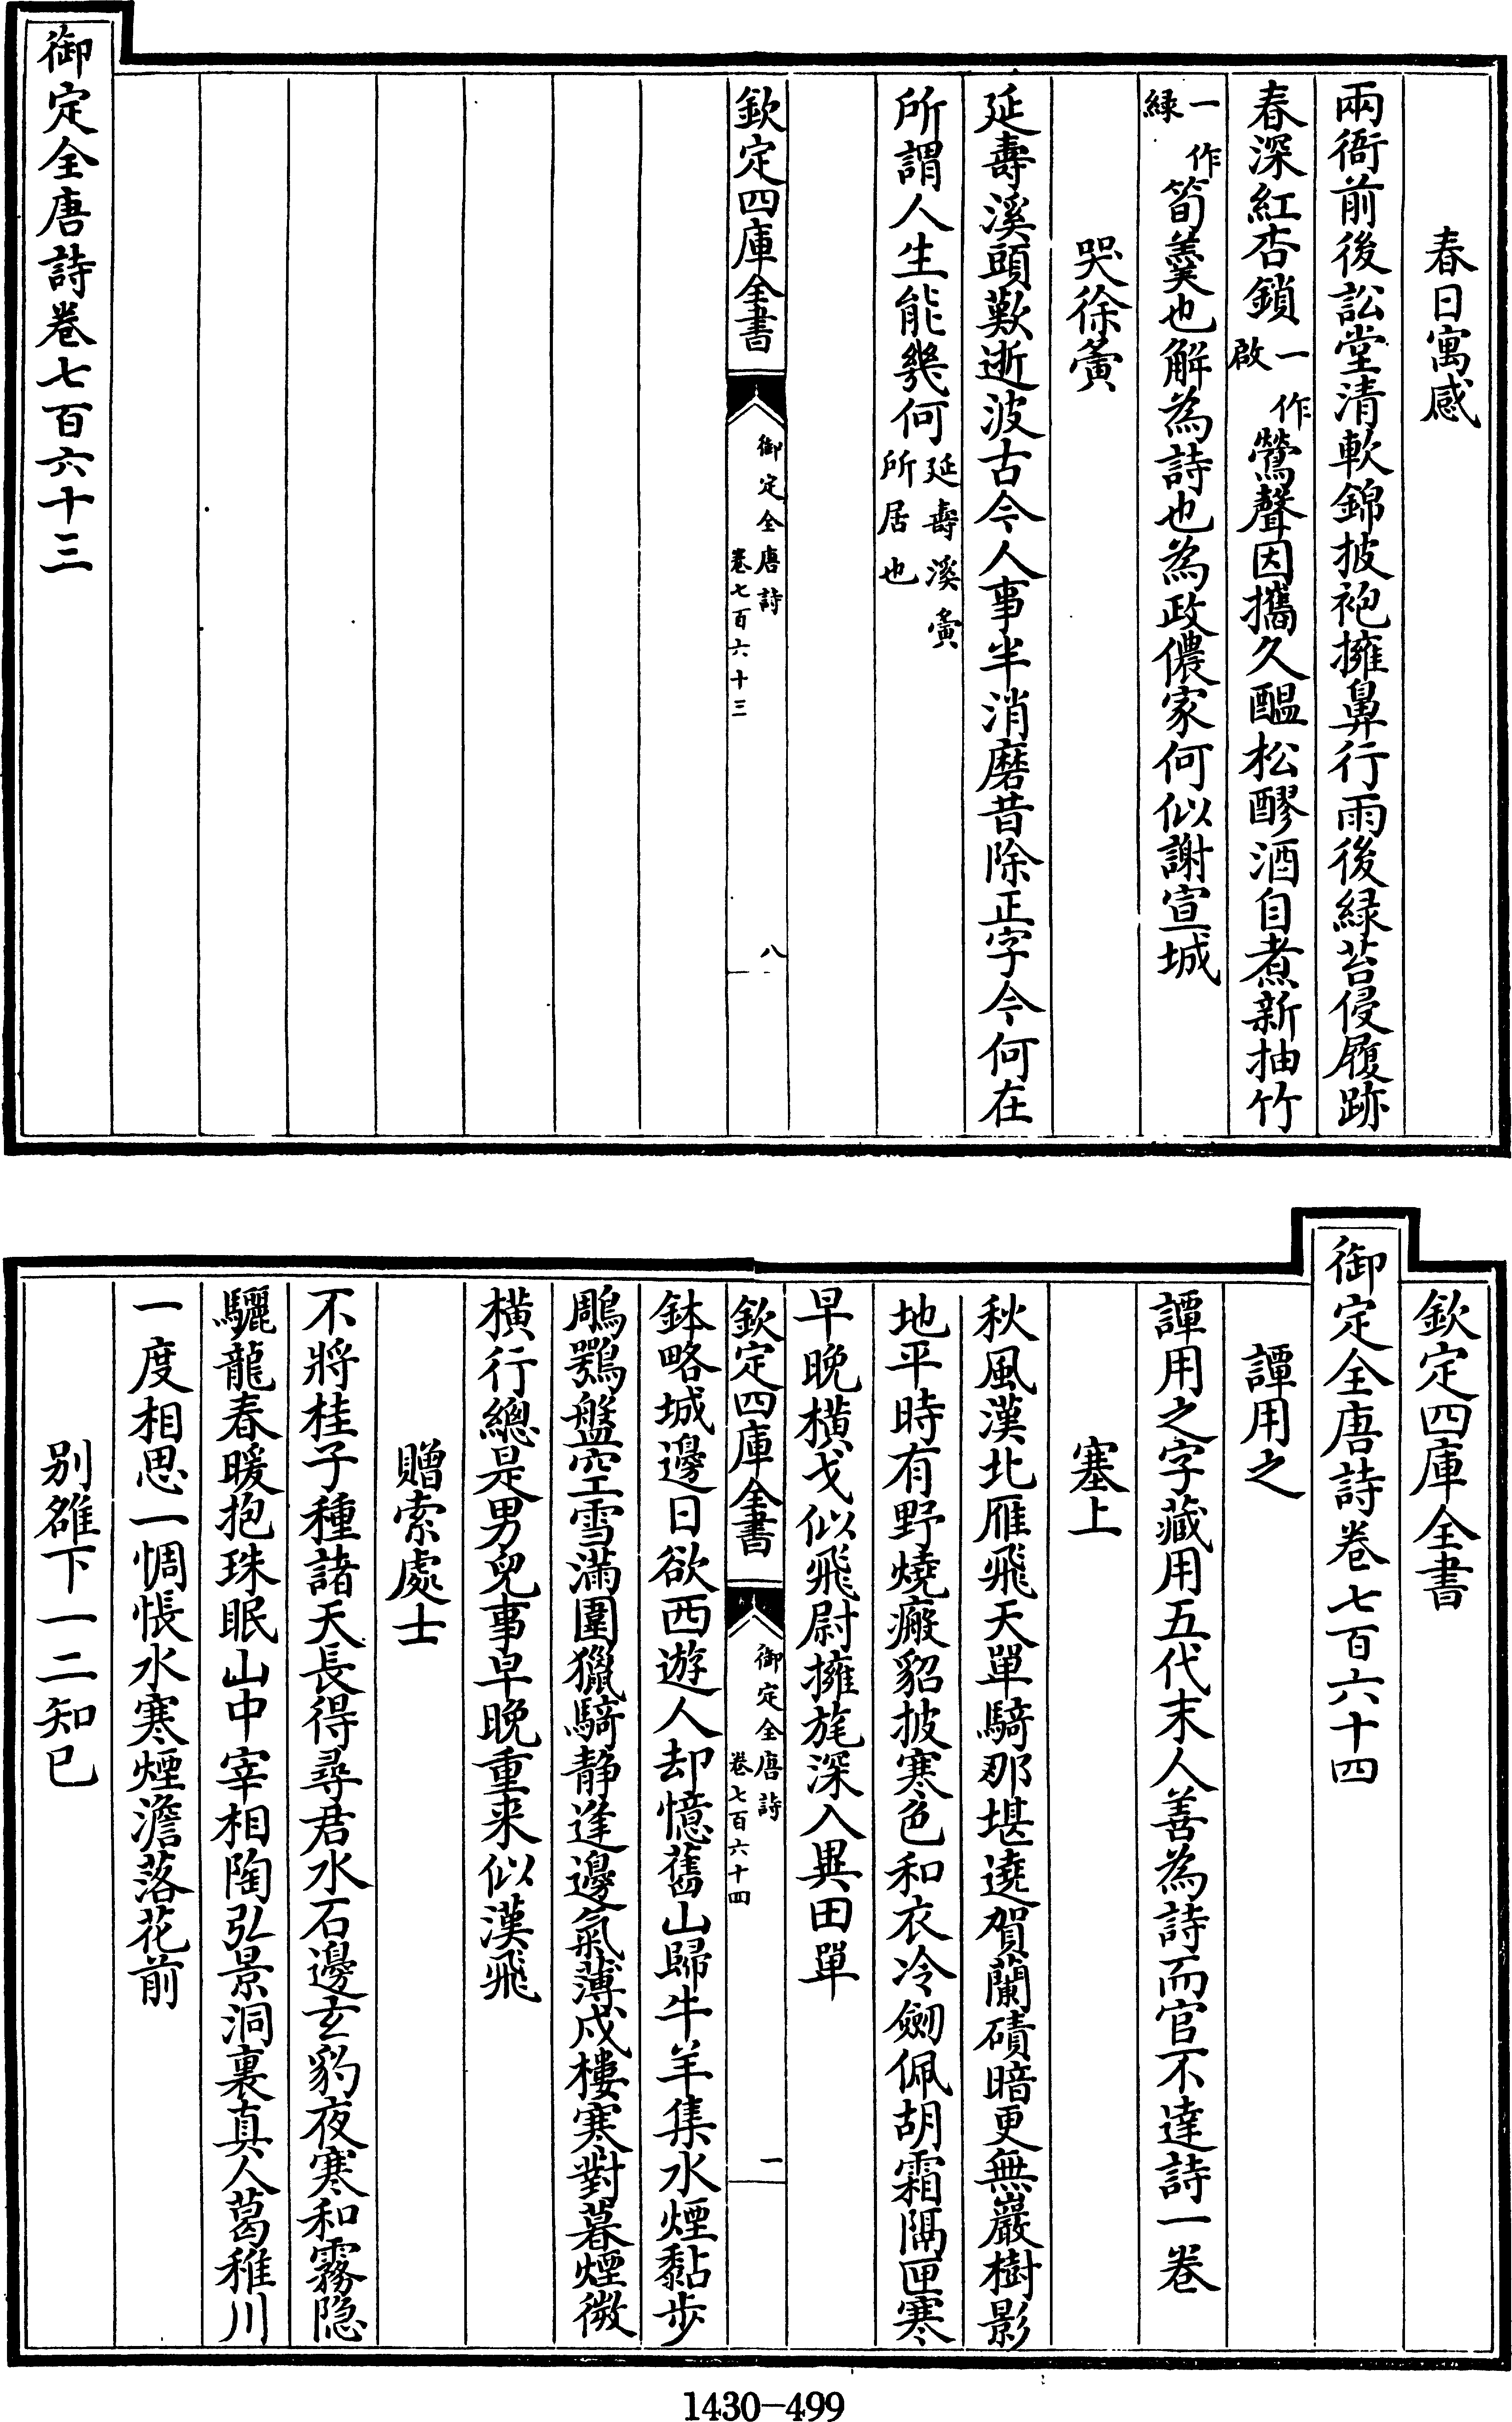 春日寓感
兩衙前後訟堂清軟錦披袍擁鼻行雨後緑苔侵履跡
春深紅杏鎖一作啟鶯聲因攜久醖松醪酒自煮新抽竹
一作緑筍羹也解為詩也為政儂家何似謝宣城
哭徐夤
延壽溪頭歎逝波古今人事半消磨昔除正字今何在
所謂人生能幾何延壽溪夤所居也
欽定四庫全書
御定全唐詩
卷七百六十三
八
御定全唐詩卷七百六十三
欽定四庫全書
御定全唐詩卷七百六十四
譚用之
譚用之字藏用五代末人善為詩而官不達詩一卷
塞上
秋風漢北雁飛天單騎那堪遶賀蘭磧暗更無巖樹影
地平時有野燒瘢貂披寒色和衣冷劒佩胡霜隔匣寒
早晚横戈似飛尉擁旄深入異田單
欽定四庫全書
御定全唐詩
卷七百六十四
一
鉢略城邊日欲西遊人却憶舊山歸牛羊集水煙黏步
鵰鶚盤空雪滿圍獵騎静逢邊氣薄戍樓寒對暮煙微
横行總是男兒事早晚重来似漢飛
贈索處士
不將桂子種諸天長得尋君水石邊玄豹夜寒和霧隐
驪龍春暖抱珠眠山中宰相陶弘景洞裏真人葛稚川
一度相思一惆悵水寒煙澹落花前
别雒下一二知已
1430-499